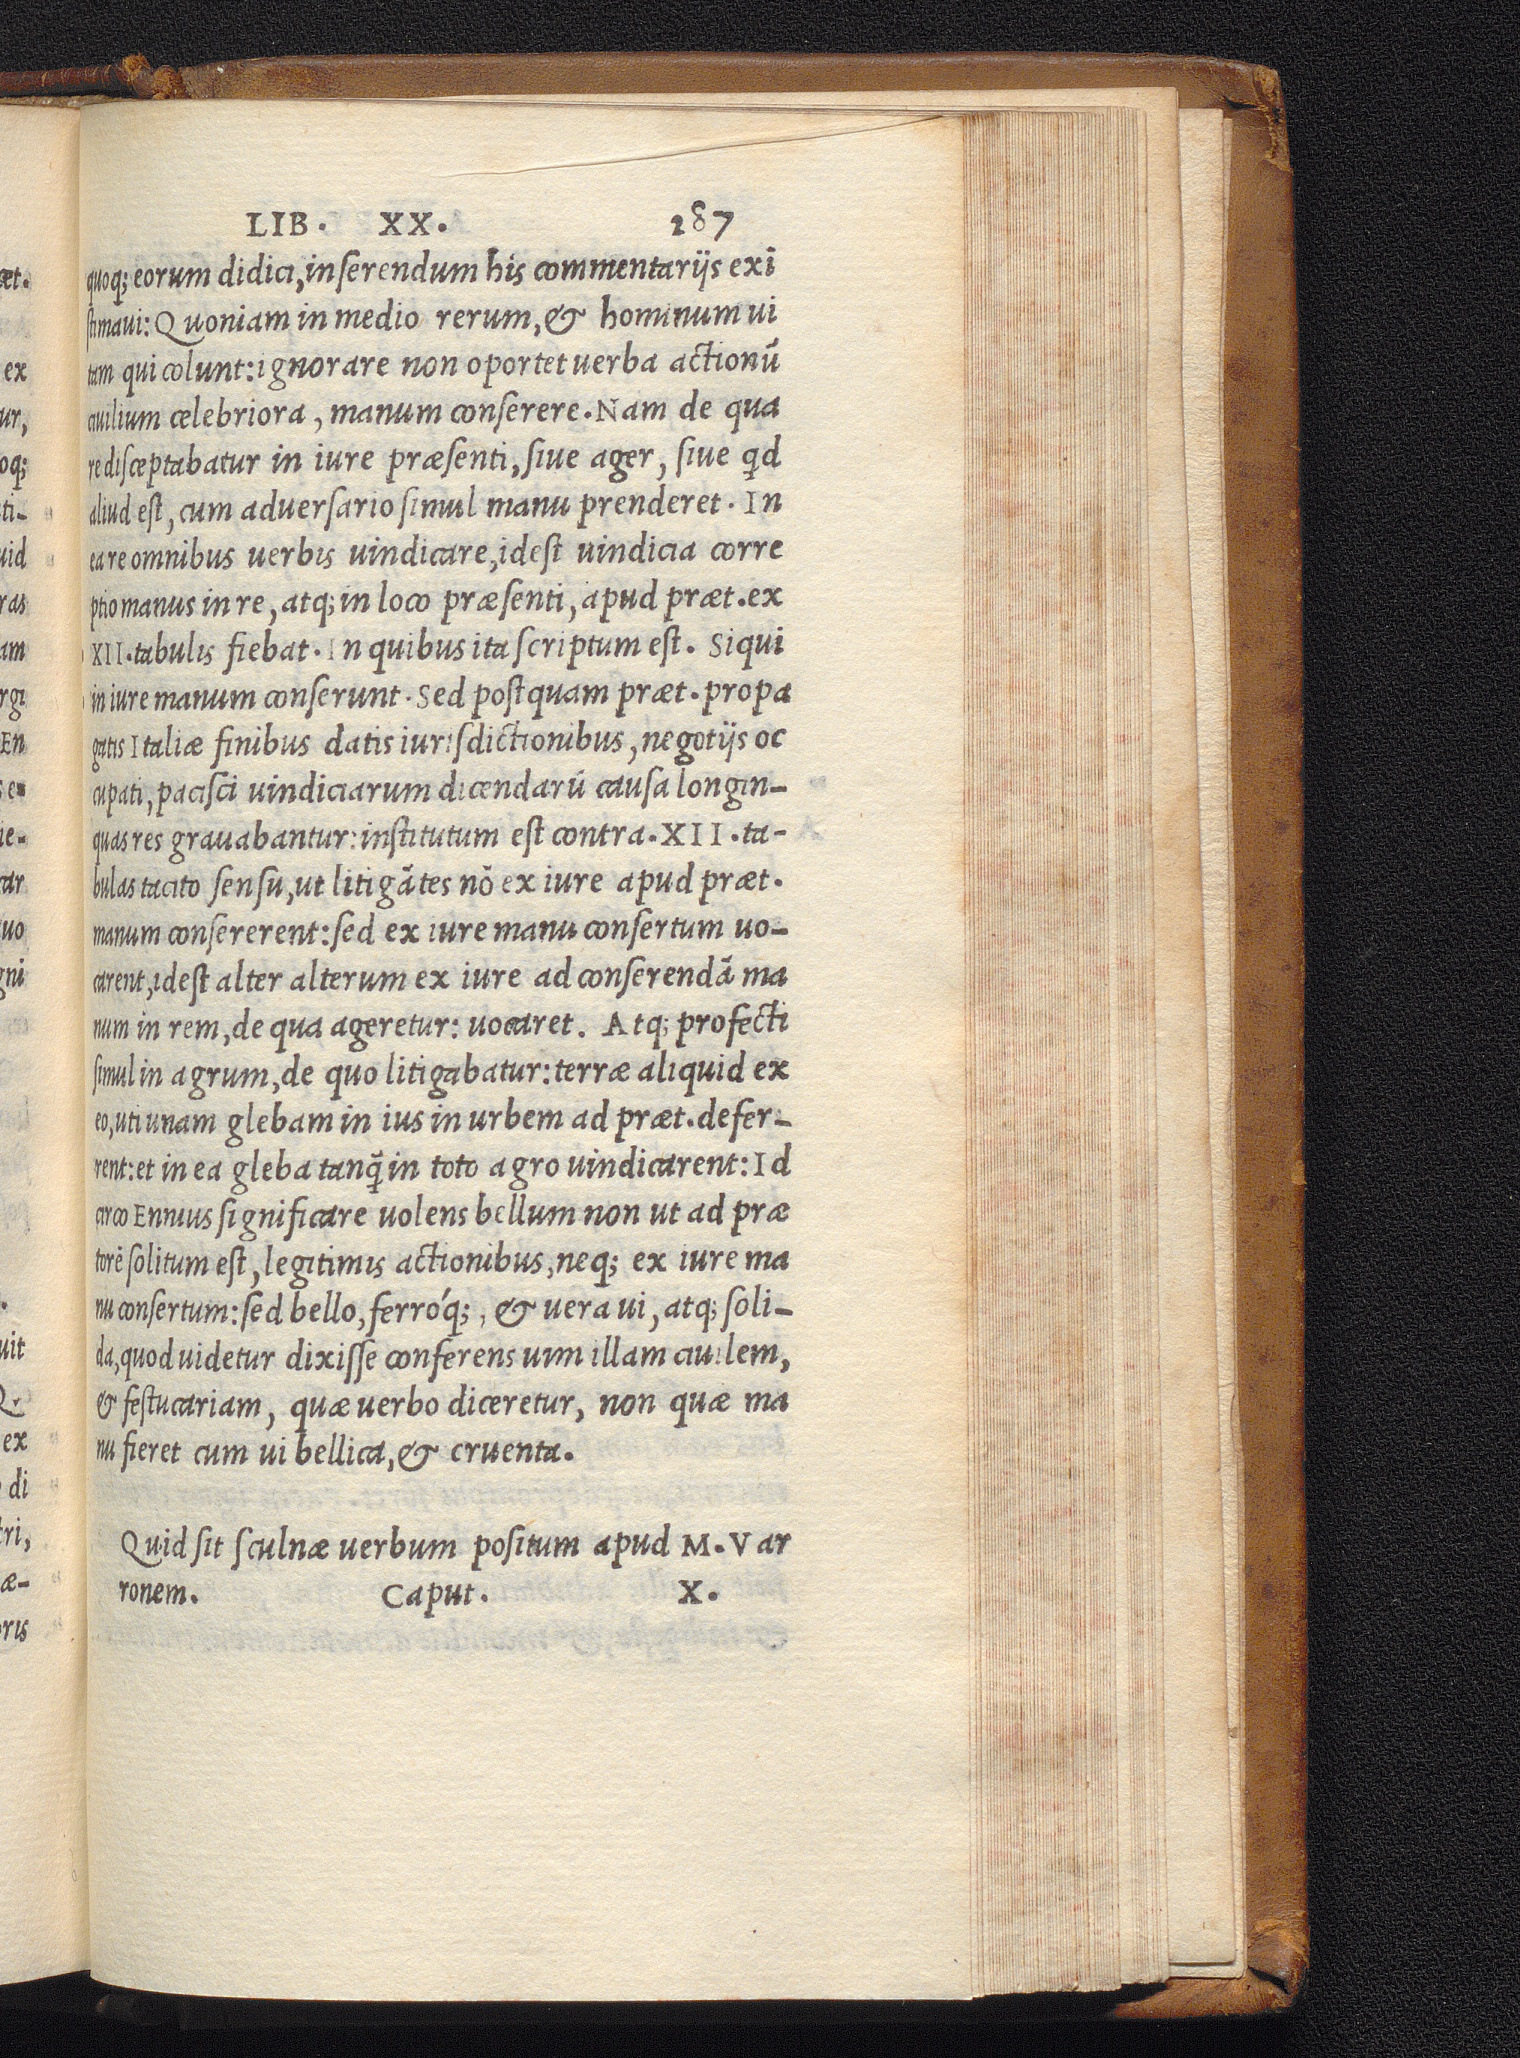 LIB. XX. 287
quoq; eorum didici, inserendum his commentarijs exi
stimaui: Quoniam in medio rerum, & hominum ui
tam qui colunt: ignorare non oportet uerba actionũ
ciuilium celebriora, manum conserere. Nam de qua
re disceptabatur in iure præsenti, siue ager, siue qd
aliud est, cum aduersario simul manu prenderet. In
ea re omnibus uerbis uindicare, idest uindicia corre
ptio manus in re, atq; in loco præsenti, apud præt. ex
XII. tabulis fiebat. In quibus ita scriptum est. Siqui
in iure manum conserunt. Sed postquam præt. propa
gatis Italiæ finibus datis iurisdictionibus, negotijs oc
cupati, pacisci uindiciarum dicendarũ causa longin-
quas res grauabantur: institutum est contra. XII. ta-
bulas tacito sensu, ut litigãtes nõ ex iure apud præt.
manum consererent: sed ex iure manu consertum uo-
carent, idest alter alterum ex iure ad conserendã ma
num in rem, de qua ageretur: uocaret. Atq; profecti
simul in agrum, de quo litigabatur: terræ aliquid ex
eo, uti unam glebam in ius in urbem ad præt. defer-
rent: et in ea gleba tanq̃ in toto agro uindicarent: Id
circo Ennius significare uolens bellum non ut ad præ
torẽ solitum est, legitimis actionibus, neq; ex iure ma
nu consertum: sed bello, ferróq;, & uera ui, atq; soli-
da, quod uidetur dixisse conferens uim illam ciuilem,
& festucariam, quæ uerbo diceretur, non quæ ma
nu fieret cum ui bellica, & cruenta.
Quid sit sculnæ uerbum positum apud M. Var
ronem. Caput. X.